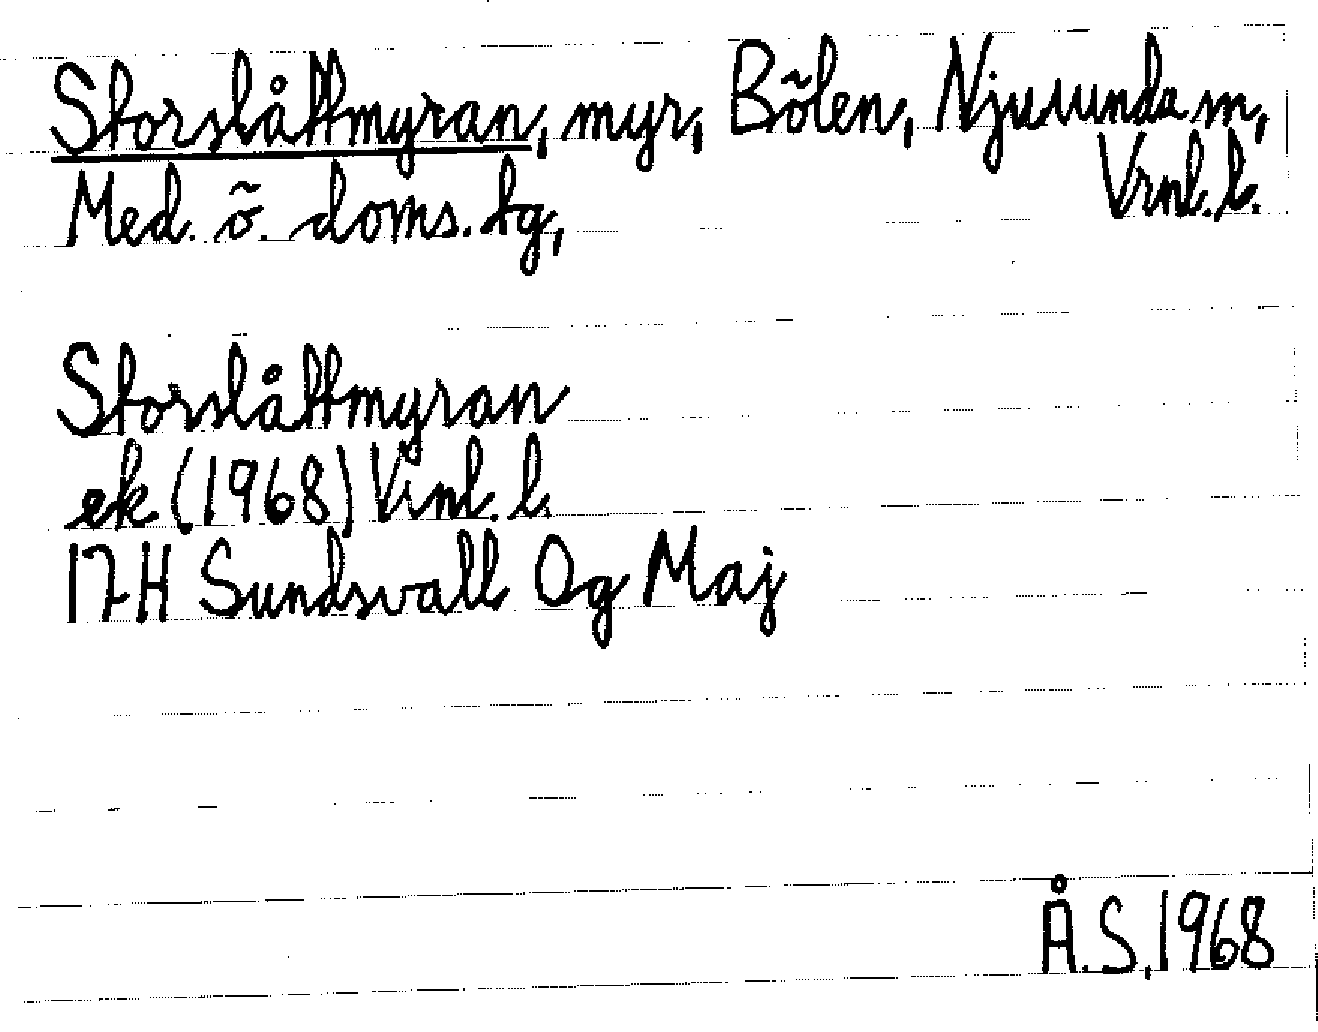 Storslåttmyran, myr, Bölen, Njurunda sn,
Vrnl. l.
Med. ö. doms. tg,
Storslåttmyran
ek (1968) Vrnl. l.
17H Sundsvall Og Maj
Å.S, 1968